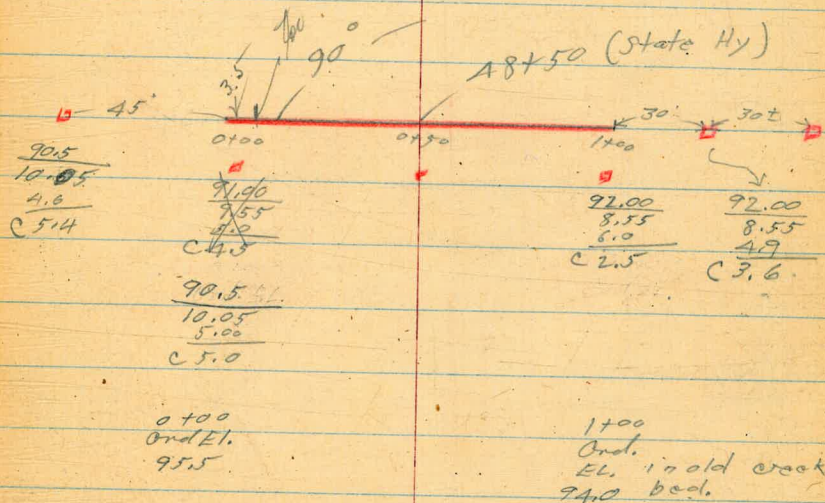 90°
48+50 (State Hy)
3.5
45'
30'
30±
0+00
0+50
1+00
90.5
10.05
4.6
C 5.4
91.00
9.55
5.0
C 4.5
90.5
10.05
5.00
C 5.0
92.00
8.55
6.0
C 2.5
92.00
8.55
4.9
C 3.6
0+00
Ord El.
95.5
1+00
Ord.
EL. in old creek
94.0 bed.